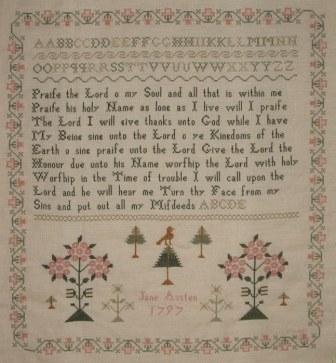 AABBCCDDEEFFGGHHIIKKLLMMNN
OOPPQQRRSSTTVVUUWWXXYYZZ
Praife the Lord o my Soul and all that is within me
Praife his holy Name as long as I live will I praife
The Lord I will give thanks unto God while I have
My Being sing unto the Lord o ye Kingdoms of the
Earth o sing praife unto the Lord Give the Lord the
Honour due unto his Name worfhip the Lord with holy
Worfhip in the Time of trouble I will call upon the
Lord and he will hear me Turn thy Face from my
Sins and put out all my Mifdeeds ABCDE
Jane Austen
1797